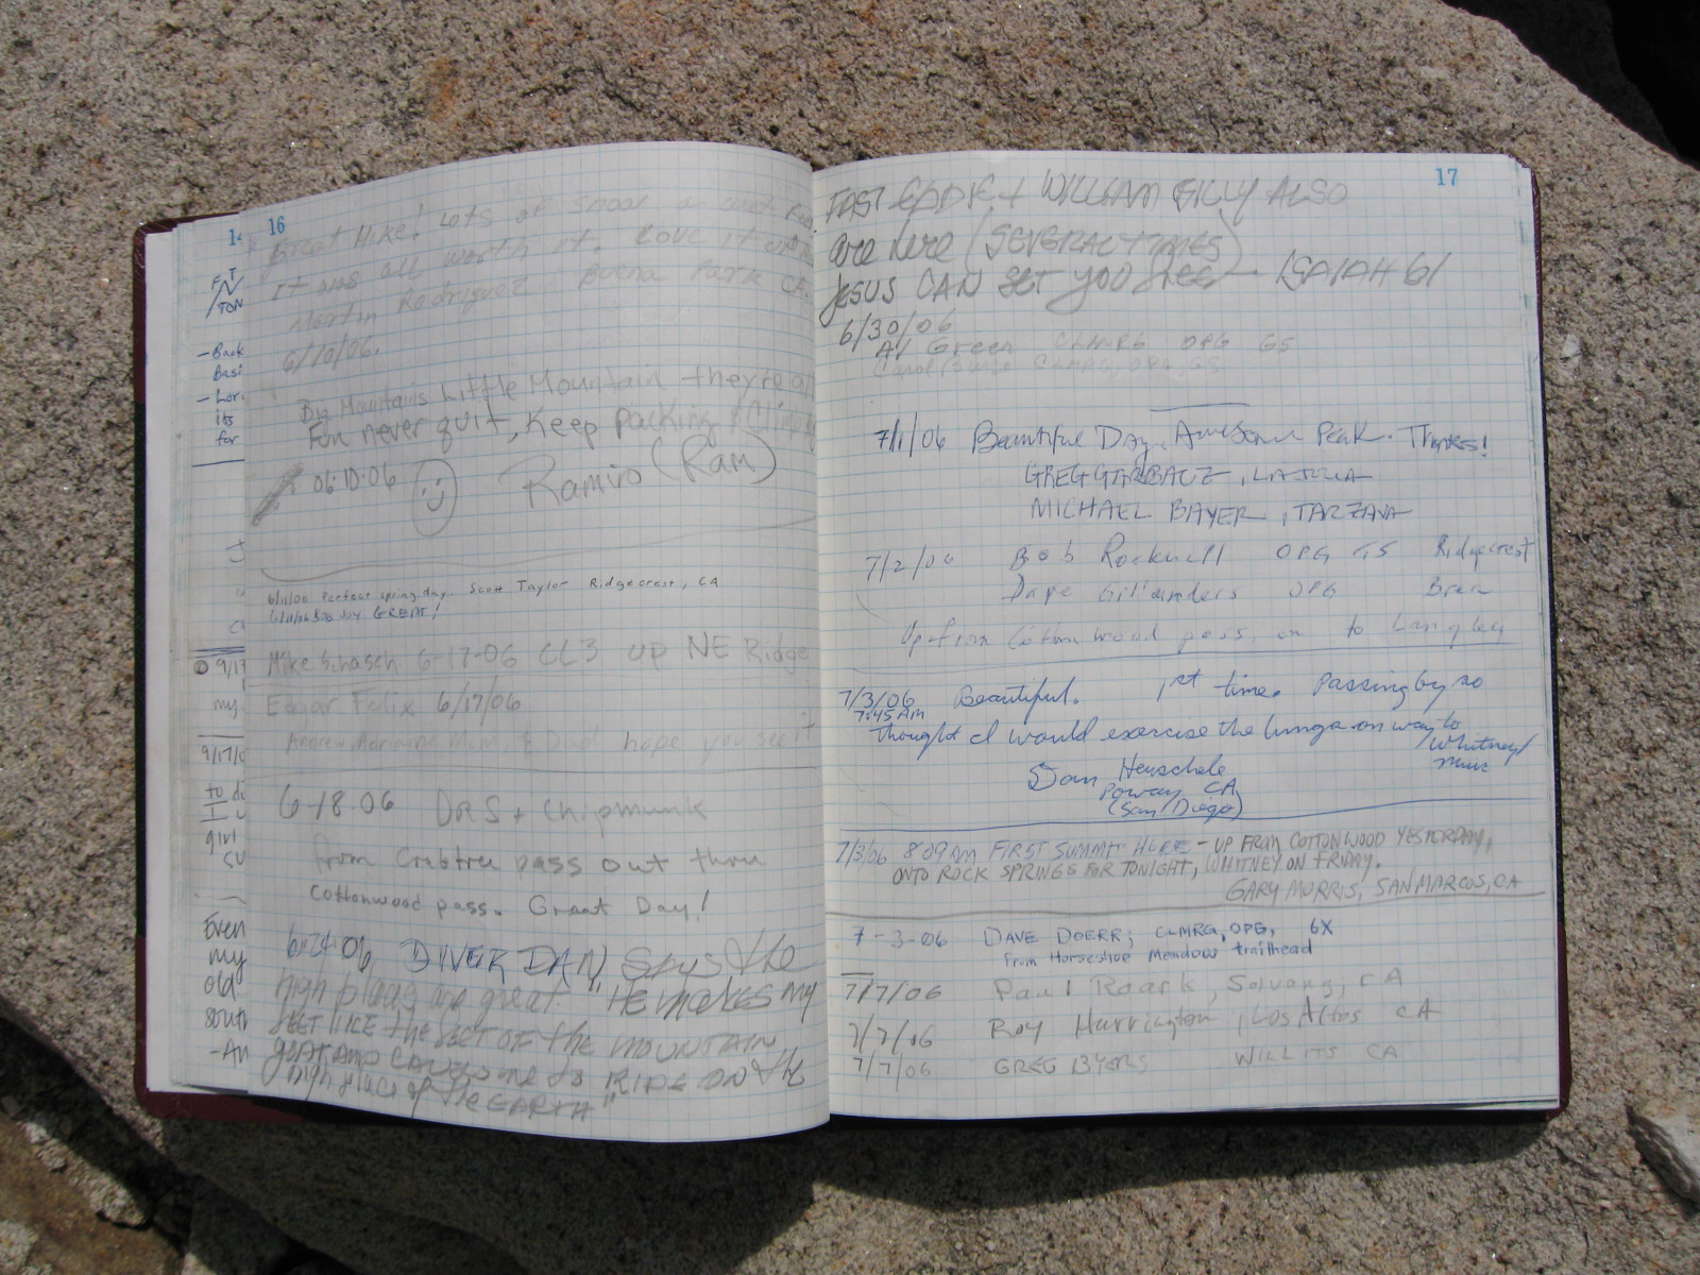 16
Great Hike! Lots of snow
it was all worth it. Love it
Martin Rodriguez Buena Park CA.
6/10/06.
Big Mountains Little Mountain they're all
Fun never quit, Keep packing & Climbing
06-10-06
Ramiro (Ram)
Perfect spring day. Scott Taylor Ridgecrest, CA
GREAT!
Mike 6-17-06 CL3 up NE Ridge
Edgar Felix 6/17/06
hope you see it
6-18-06 DRS + Chipmunk
from Crabtree pass out thru
Cottonwood pass. Great Day!
6-24-06 DIVER DAN Says the
high places are great "HE MAKES MY
FEET LIKE the FEET OF the MOUNTAIN
goat AND CAUSES me to RIDE ON the
high place of the EARTH"
17
FAST EDDIE + WILLIAM GILLY ALSO
are here (SEVERAL TIMES)
JESUS CAN SET YOU free - ISAIAH 61
6/30/06
Al Green CLMRG OPG GS
Carol CLMRG, OPG, GS
7/1/06 Beautiful Day. Awesome Peak. Thanks!
GREG GARBACZ, LA JOLLA
MICHAEL BAYER, TARZANA
7/2/06 Bob Rockwell OPG GS Ridgecrest
Dave Gillanders OPG Brea
Up from Cottonwood pass, on to Langley
7/3/06 Beautiful. 1st time. Passing by so
7:45 AM
thought I would exercise the lungs on way to
Whitney/
Muir
Dan Henschele
Poway CA
(San Diego)
7/3/06 8:09 AM FIRST SUMMIT HERE - UP FROM COTTONWOOD YESTERDAY,
ONTO ROCK SPRINGS FOR TONIGHT, WHITNEY ON FRIDAY.
GARY MORRIS, SAN MARCOS, CA
7-3-06 DAVE DOERR; CLMRG, OPG, 6X
From Horseshoe Meadow trailhead
7/7/06 Paul Roark, Solvang, CA
7/7/06 Roy Harrington, Los Altos CA
7/7/06 GREG BYERS WILLITS CA